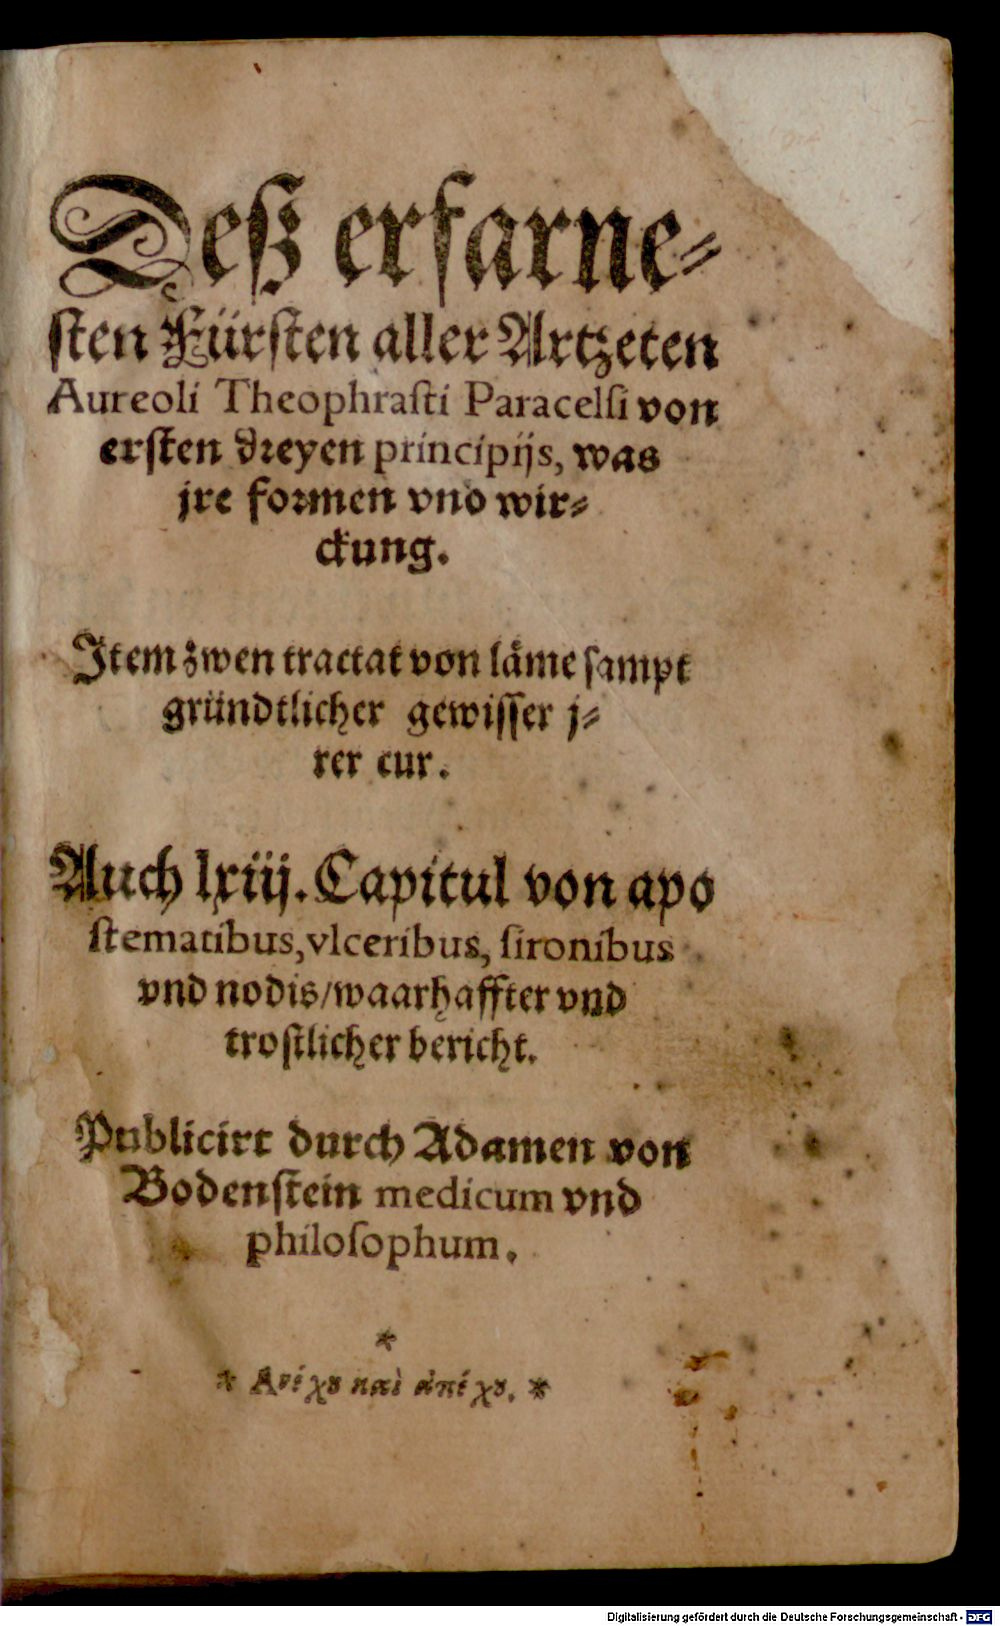 Deß erfarne⸗
ſten Fürſten aller Artzeten
Aureoli Theophraſti Paracelſi von
erſten dreyen principijs, was
jre formen vnd wir⸗
ckung.
Item zwen tractat von läme ſampt
gründtlicher gewiſſer j⸗
rer cur.
Auch lxiij. Capitul von apo
ſtematibus, vlceribus, ſironibus
vnd nodis/ waarhaffter vnd
troſtlicher bericht.
Publicirt durch Adamen von
Bodenſtein medicum vnd
philoſophum.
*
* Ανέχȣ καὶ ἀπέχȣ. *
Digitalisierung gefördert durch die Deutsche Forschungsgemeinschaft - DFG